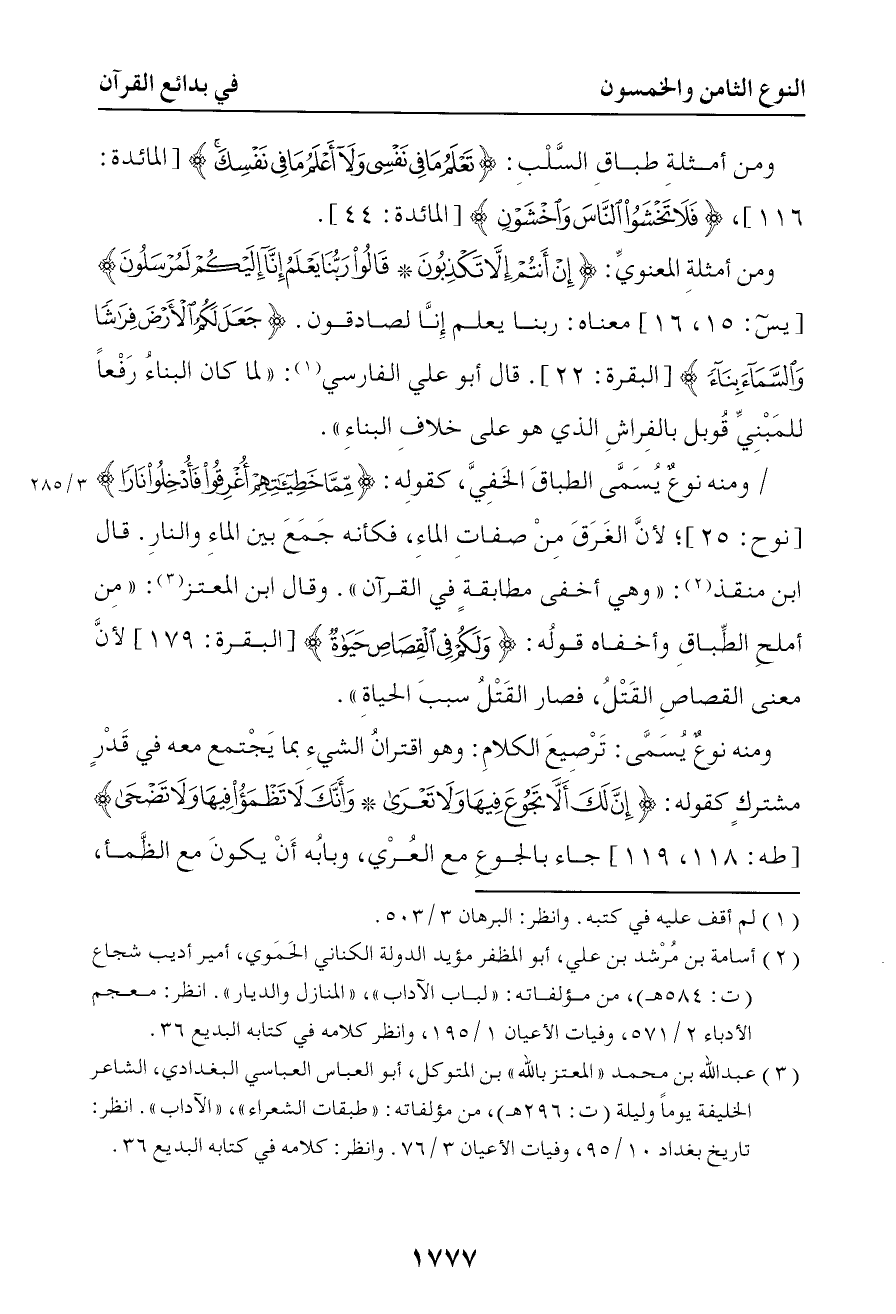 النوع الثامن والخمسون في بدائع القرآن
ومن أمثلة طباق السَّلْب: ﴿ تَعْلَمُ مَا فِي نَفْسِي وَلَآ أَعْلَمُ مَا فِي نَفْسِكَ ﴾ [المائدة:
١١٦]، ﴿ فَلَا تَخْشَوُا۟ ٱلنَّاسَ وَٱخْشَوْنِ ﴾ [المائدة: ٤٤].
ومن أمثلة المعنويِّ: ﴿ إِنْ أَنتُمْ إِلَّا تَكْذِبُونَ * قَالُوا۟ رَبُّنَا يَعْلَمُ إِنَّآ إِلَيْكُمْ لَمُرْسَلُونَ ﴾
[يسٓ: ١٥، ١٦] معناه: ربنا يعلم إنَّا لصادقون. ﴿ جَعَلَ لَكُمُ ٱلْأَرْضَ فِرَٰشًا
وَٱلسَّمَآءَ بِنَآءً ﴾ [البقرة: ٢٢]. قال أبو علي الفارسي(١): «لما كان البناءُ رَفْعاً
للمَبْنيِّ قُوبل بالفراش الذي هو على خلافِ البناء».
/ ومنه نوعٌ يُسَمَّى الطباقَ الخفيَّ، كقوله: ﴿ مِّمَّا خَطِيٓـَٰٔتِهِمْ أُغْرِقُوا۟ فَأُدْخِلُوا۟ نَارًا ﴾ ٢٨٥/٣
[نوح: ٢٥]؛ لأنَّ الغَرَقَ مِنْ صفاتِ الماء، فكأنه جَمَعَ بين الماء والنار. قال
ابن منقذ(٢): «وهي أخفى مطابقةٍ في القرآن». وقال ابن المعتز(٣): «من
أملحِ الطِّباقِ وأخفاه قولُه: ﴿ وَلَكُمْ فِي ٱلْقِصَاصِ حَيَوٰةٌ ﴾ [البقرة: ١٧٩] لأنَّ
معنى القصاصِ القَتْلُ، فصار القَتْلُ سببَ الحياةِ».
ومنه نوعٌ يُسَمَّى: تَرْصِيعَ الكلام: وهو اقترانُ الشيءِ بما يَجْتمع معه في قَدْرٍ
مشتركٍ كقوله: ﴿ إِنَّ لَكَ أَلَّا تَجُوعَ فِيهَا وَلَا تَعْرَىٰ * وَأَنَّكَ لَا تَظْمَؤُا۟ فِيهَا وَلَا تَضْحَىٰ ﴾
[طه: ١١٨، ١١٩] جاء بالجوعِ مع العُرْي، وبابُه أنْ يكونَ مع الظَّمأ،
(١) لم أقف عليه في كتبه. وانظر: البرهان ٥٠٣/٣.
(٢) أسامة بن مُرْشد بن علي، أبو المظفر مؤيد الدولة الكناني الحَمَوي، أمير أديب شجاع
(ت: ٥٨٤هـ)، من مؤلفاته: «لباب الآداب»، «المنازل والديار». انظر: معجم
الأدباء ٥٧١/٢، وفيات الأعيان ١٩٥/١، وانظر كلامه في كتابه البديع ٣٦.
(٣) عبدالله بن محمد «المعتز بالله» بن المتوكل، أبو العباس العباسي البغدادي، الشاعر
الخليفة يوماً وليلة (ت: ٢٩٦هـ)، من مؤلفاته: «طبقات الشعراء»، «الآداب». انظر:
تاريخ بغداد ٩٥/١٠، وفيات الأعيان ٧٦/٣. وانظر: كلامه في كتابه البديع ٣٦.
١٧٧٧